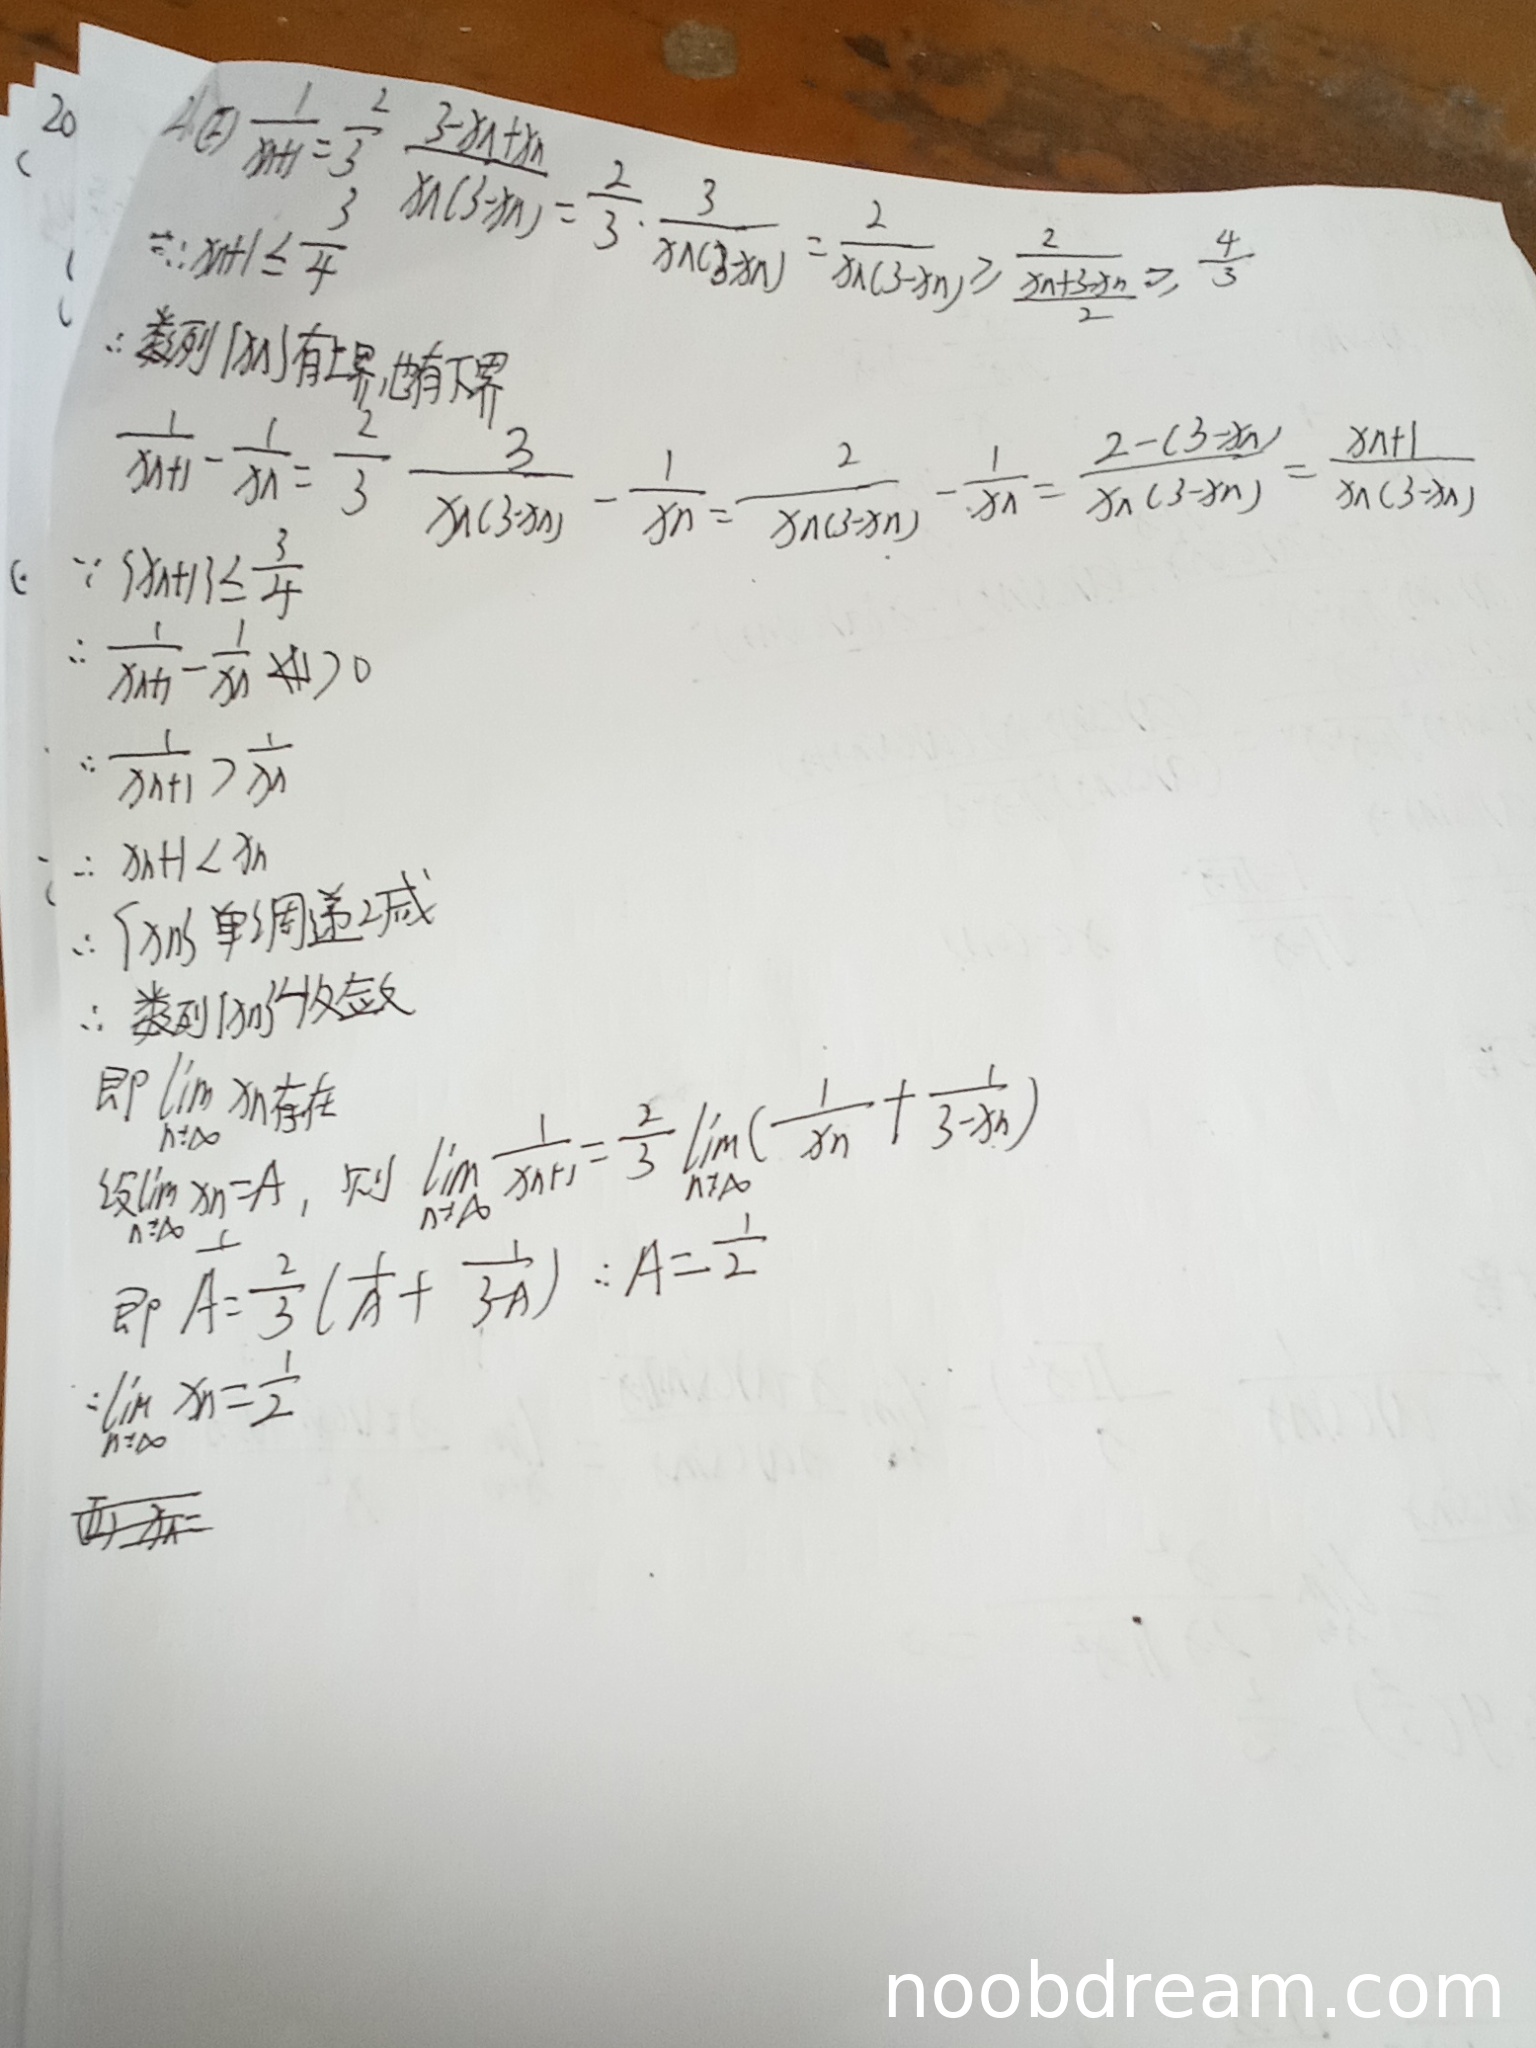 20
2(2) 1/(xn+1) = 2/3 (3-xn+xn)/(xn(3-xn)) = 2/3 · 3/(xn(3-xn)) = 2/(xn(3-xn)) ≥ 2/((xn+3-xn)/2) ≥ 4/3
∴ xn+1 ≤ 3/4
∴ 数列{xn}有上界,也有下界
1/(xn+1) - 1/xn = 2/3 3/(xn(3-xn)) - 1/xn = 2/(xn(3-xn)) - 1/xn = (2-(3-xn))/(xn(3-xn)) = (xn+1)/(xn(3-xn))
∵ {xn+1} ≤ 3/4
∴ 1/(xn+1) - 1/xn > 0
∴ 1/(xn+1) > 1/xn
∴ xn+1 < xn
∴ {xn} 单调递减
∴ 数列{xn}收敛
即 lim n→∞ xn存在
设 lim n→∞ xn=A, 则 lim n→∞ 1/(xn+1) = 2/3 lim n→∞ (1/xn + 1/(3-xn))
即 1/A = 2/3 (1/A + 1/(3-A)) ∴ A = 1/2
∴ lim n→∞ xn = 1/2
noobdream.com